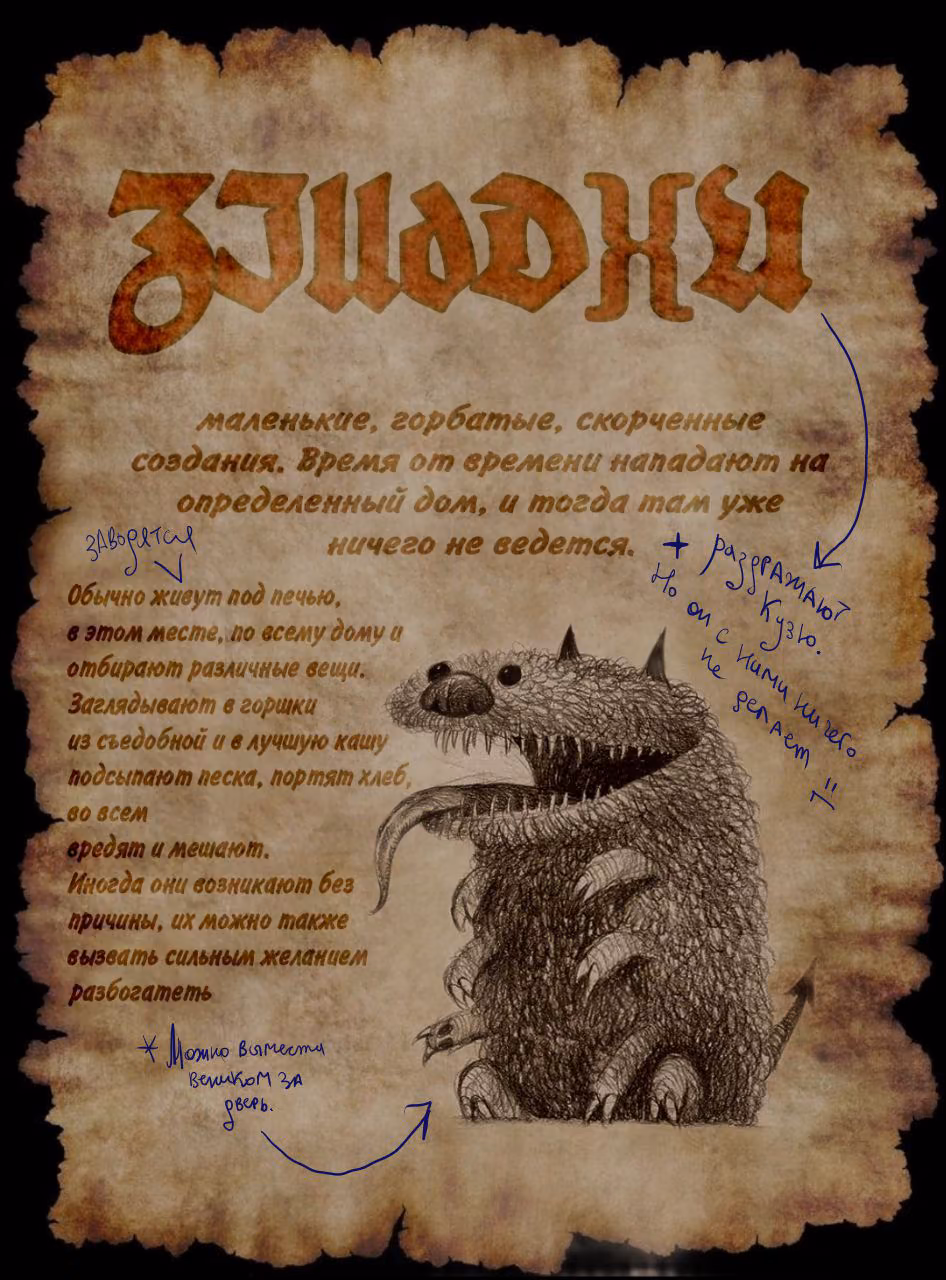 Злыдни
маленькие, горбатые, скорченные
создания. Время от времени нападают на
определенный дом, и тогда там уже
ничего не ведется.
+ раздражают
Кузю.
Но он с ними ничего
не делает !!
заводятся
Обычно живут под печью,
в этом месте, по всему дому и
отбирают различные вещи.
Заглядывают в горшки
из съедобной и в лучшую кашу
подсыпают песка, портят хлеб,
во всем
вредят и мешают.
Иногда они возникают без
причины, их можно также
вызвать сильным желанием
разбогатеть
* Можно вымести
веником за
дверь.